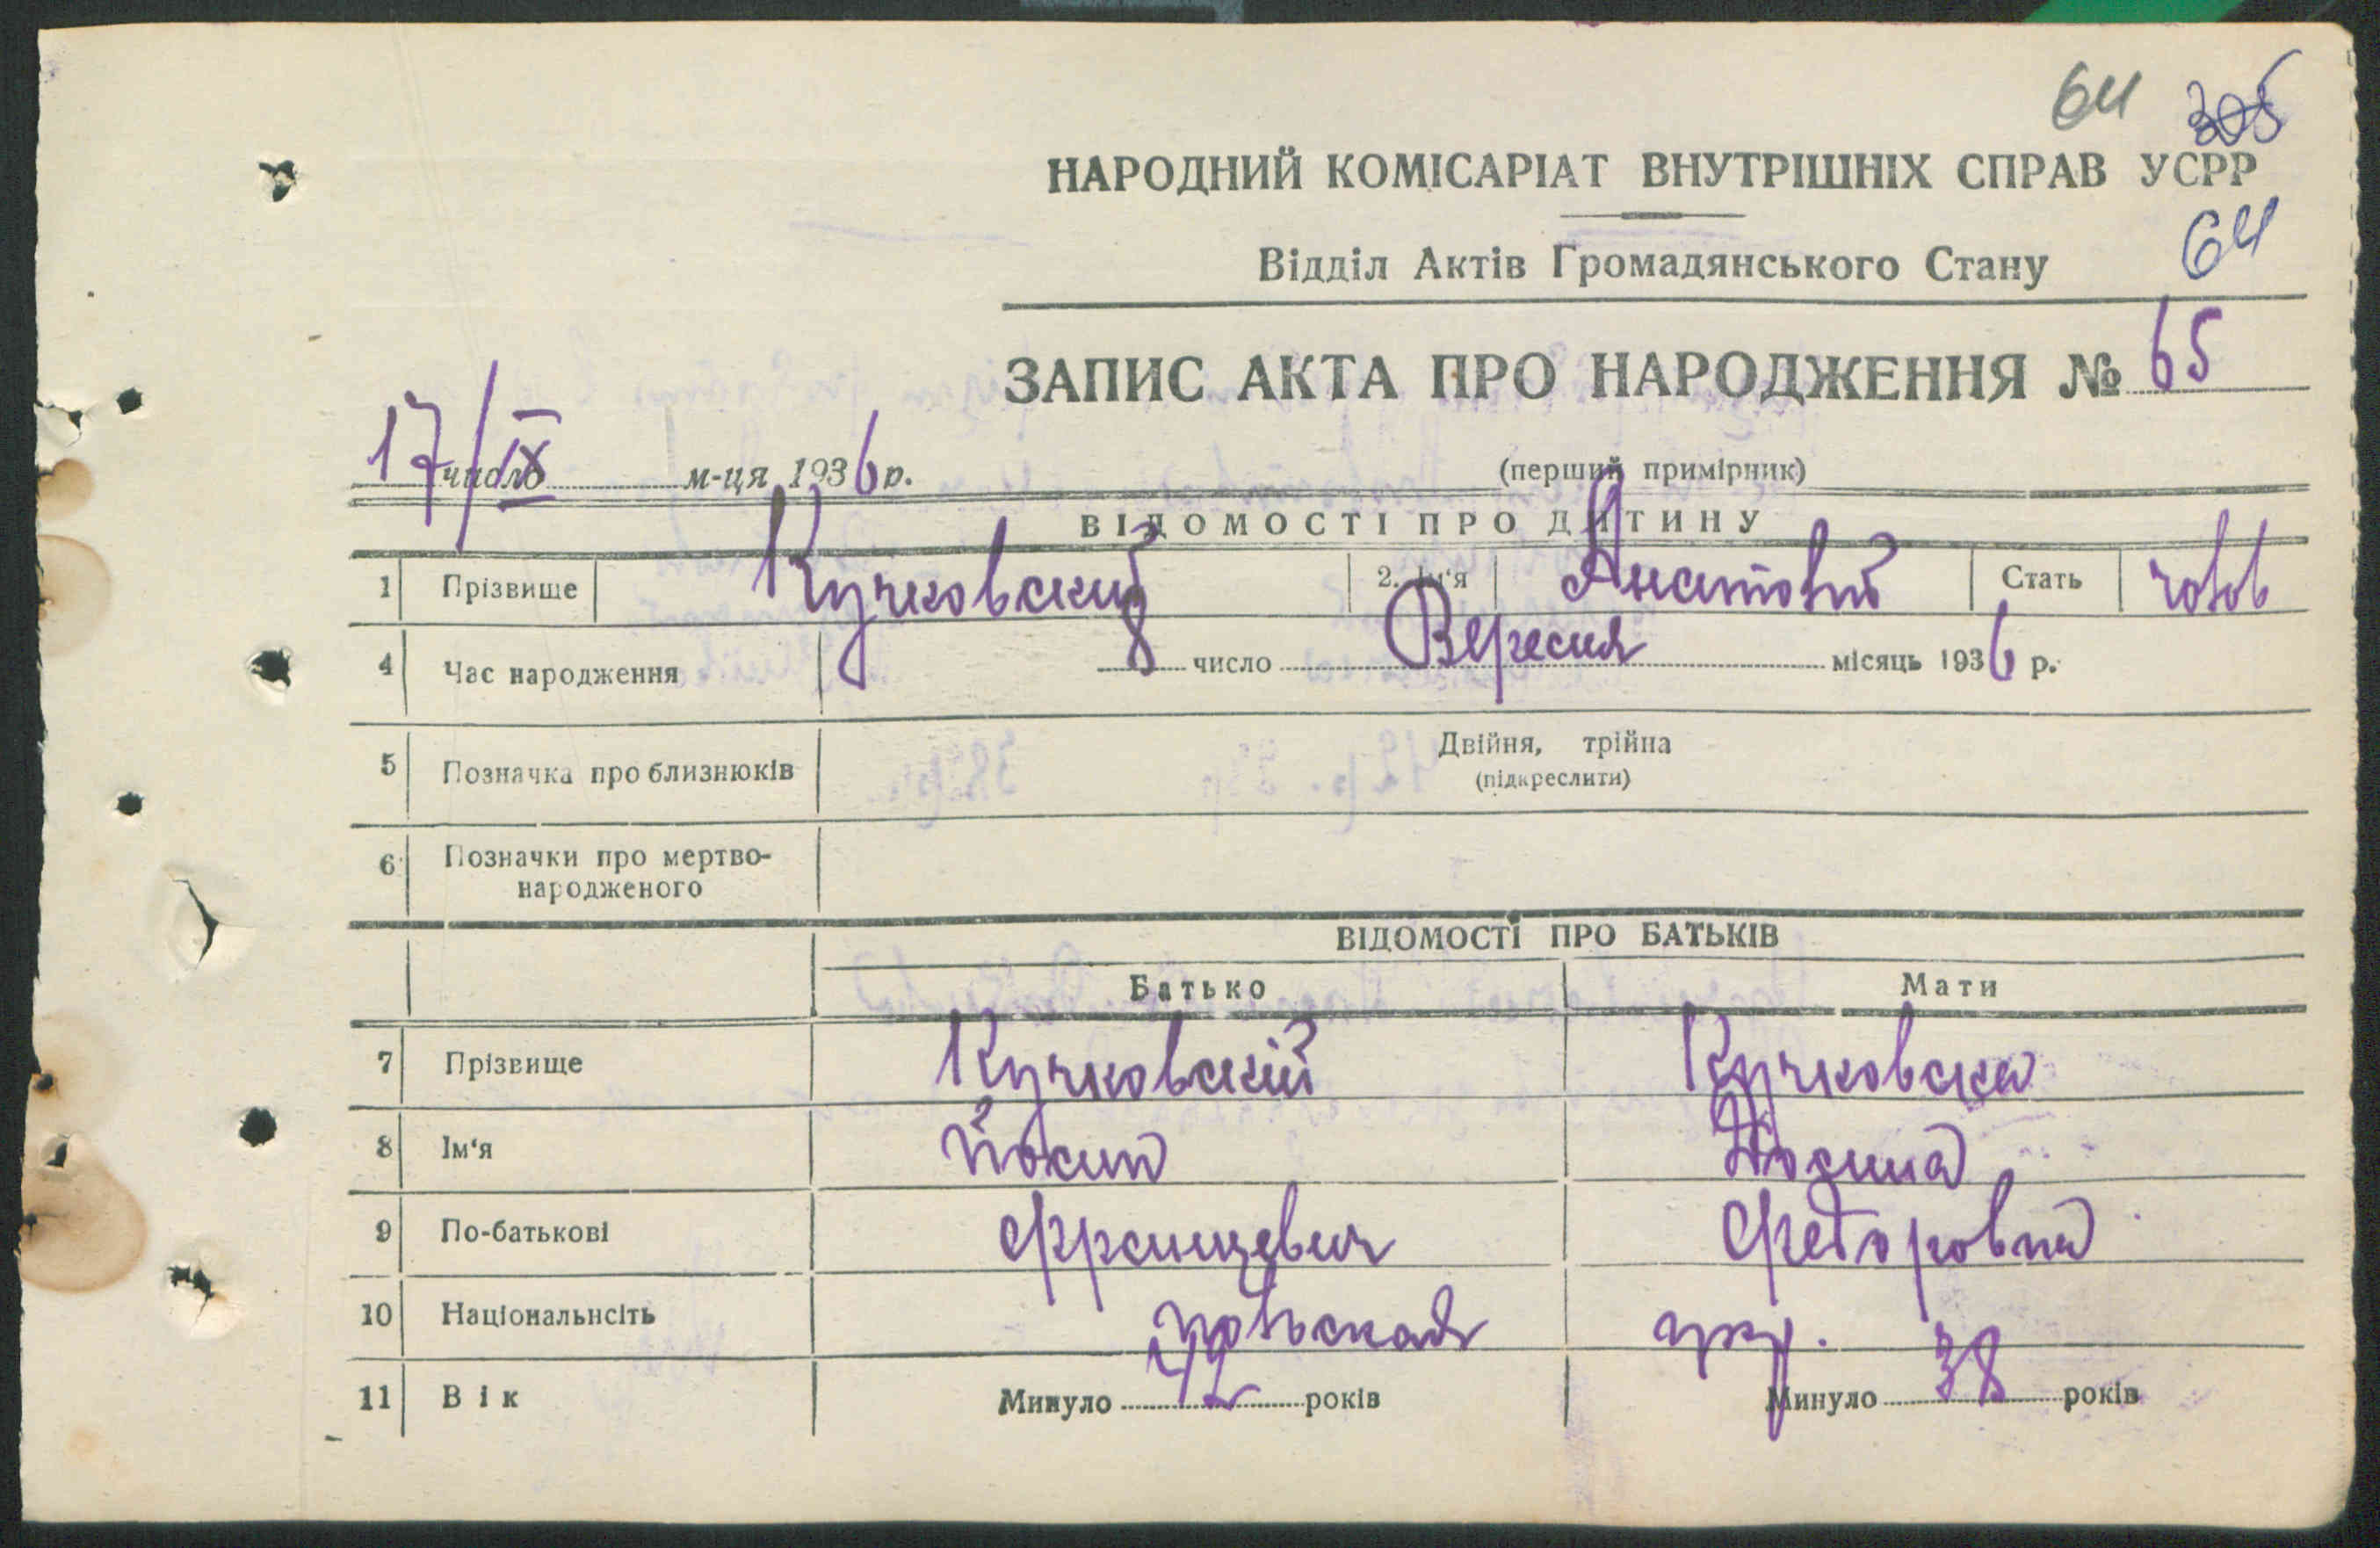 64 305
НАРОДНИЙ КОМІСАРІАТ ВНУТРІШНІХ СПРАВ УСРР
64
Відділ Актів Громадянського Стану
ЗАПИС АКТА ПРО НАРОДЖЕННЯ № 65
17/IX число м-ця 1936 р.
(перший примірник)
ВІДОМОСТІ ПРО ДИТИНУ
1 Прізвище Кучковский 2. Ім‘я Анатолий Стать чолов
4 Час народження 8 число Вересня місяць 1936 р.
5 Позначка про близнюків Двійня, трійна
(підкреслити)
6 Позначки про мертво-
народженого
ВІДОМОСТІ ПРО БАТЬКІВ
Батько Мати
7 Прізвище Кучковскій Кучковска
8 Ім‘я Йосип
9 По-батькові Францевич Федоровна
10 Національнсіть польская укр.
11 Вік Минуло 42 років Минуло 38 років